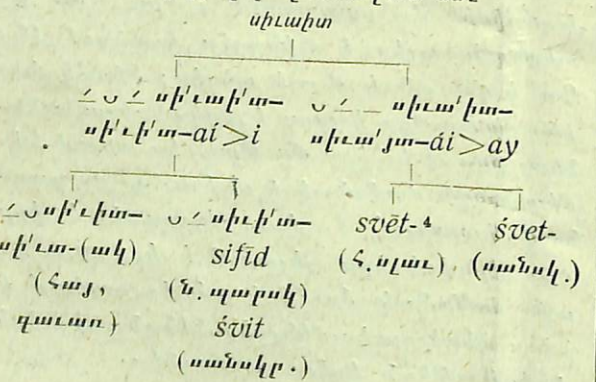 սիւաիտ
∠ ᴗ ∠ սի՛ւաի՛տ– ᴗ ∠ _ սիւա՛իտ–
սի՛ւի՛տ–aí>i սիւա՛յտ–ái>ay
∠ ᴗ սի՛ւիտ– ᴗ ∠ սիւի՛տ– svēt-⁴ śvet-
սի՛ւտ-(ակ) sifīd (Հ. սլաւ) (սանսկ.)
(Հայ, (ն. պարսկ)
գաւառ) śvit
(սանսկր.)